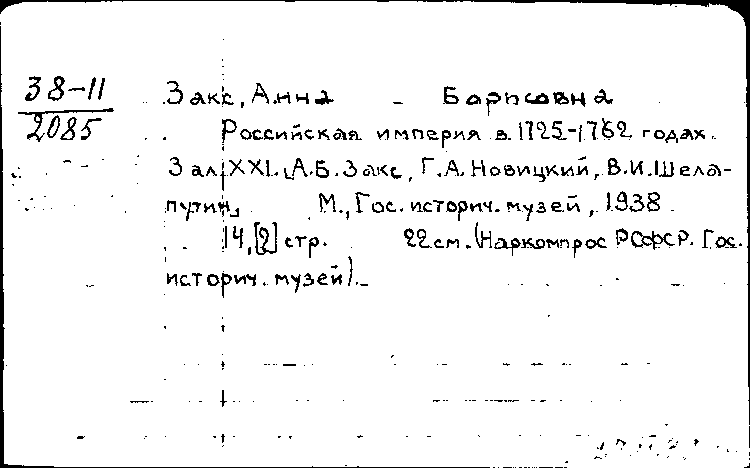 38-11
2085
Закс, Анна Борисовна
Российская империя в 1725-1762 годах.
Зал XXI. А.Б. Закс, Г.А. Новицкий, В.И. Шела-
путин. М., Гос. историч. музей, 1938
14, [2] стр. 22 см. (Наркомпрос РСФСР. Гос.
историч. музей).